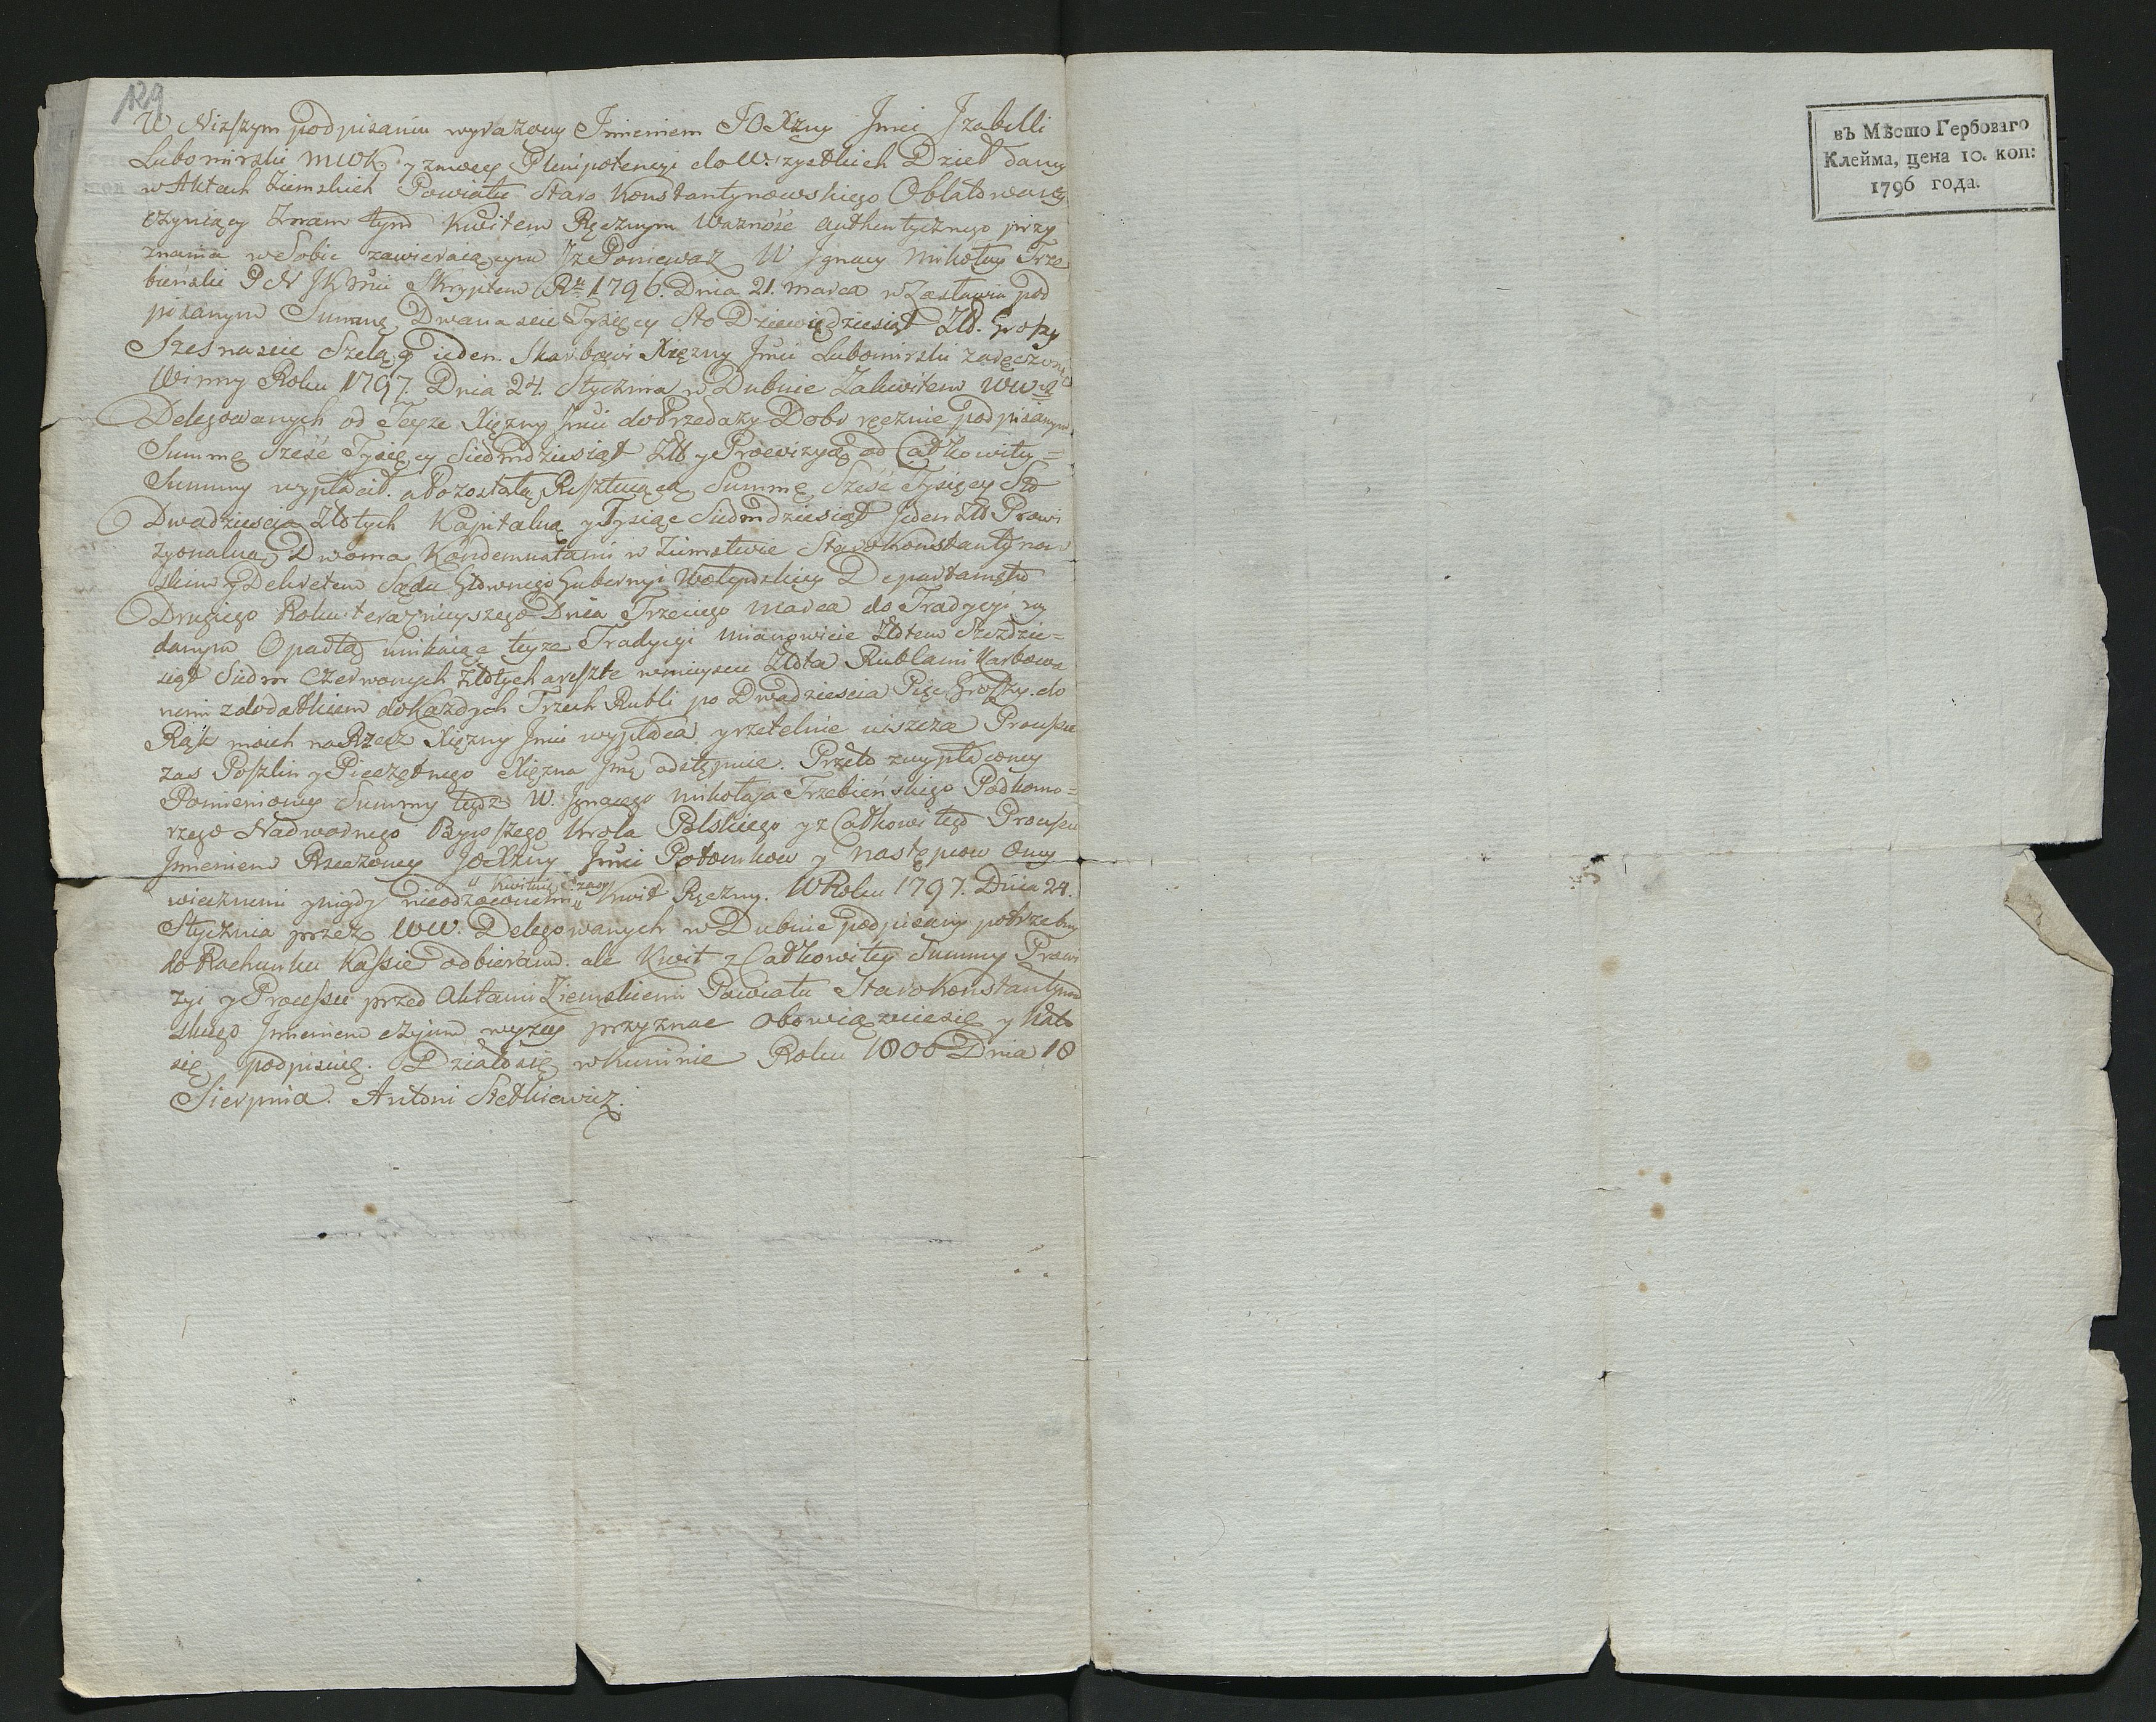 129
W Niższym podpisaniu wyrażony Imieniem JO Xżny Jmci Izabelli
Lubomirski MWK. y zmocy Plenipotencyi do Wszystkich Dzieł daney
w Aktach Ziemskich Powiatu Staro Konstantynowskiego Oblatowaney
czyniący Znam tym Kwitem Ręcznym Ważność Authentycznego przy
znania w Sobie zawieraiącym Iż Ponieważ W Ignacy Mikołay Trze
bieński P N JK Mci Skryptem Rku 1796. Dnia 21. Marca w Zasławiu pod
pisanym Summę Dwanascie Tysięcy Sto Dziewiędziesiąt Zło. Groszy
Szesnascie Szeląg ieden. Skarbowi Xiężny Jmci Lubomirski zaręczoną
Winny Roku 1797. Dnia 24. Stycznia w Dubnie Zakwitem WW
Delegowanych od Teyże Xiężny Jmci do Przedaży Dobr ręcznie podpisanym
Summę Sześć Tysięcy Siedmdziesiąt Zło y Prowizyą od Całkowity=
Summy wypłacił. a Pozostałą Resztuiącą Summę Sześć Tysięcy Sto
Dwadziescia Złotych Kapitalną y Tysiąc Siedmdziesiąt Jeden Zło Prowi
zyonalną Dwoma Kondemnatami w Ziemstwie Starokonstantynow
skim y Dekretem Sądu Głownego Gubernyi Wołynskiey Departamentu
Drugiego Roku teraznieyszego Dnia Trzeciego Marca do Tradycyi wy
danym Opartą unikaiąc teyże Tradycyi mianowicie Złotem Szezdzie=
siąt Siedm Czerwonych Złotych a resztę w mieyscu Złota Rublami Karbowa
nemi z dodatkiem do Każdych Trzech Rubli po Dwadziescia Pięć Groszy. do
Rąk moich na Rzecz Xiężny Jmci wypłaca y rzetelnie uiszcza Processu
zas Poszlin y Pieczętnego Xiężna Jmć odstępuie. Przeto z wypłaconey
Pomienioney Summy tegoż W. Ignacego Mikołaja Trzebieńskiego Podkomo=
rzego Nadwornego Bywszego Krola Polskiego y z Całkowitego Processu
Imieniem Rzeczoney JO Xżny Jmci Potomkow y Następcow Oney
" Kwituię zaś
wiecznemi y nigdy nieodzownemi " Kwit Ręczny. W Roku 1797. Dnia 24.
Stycznia przez WW. Delegowanych w Dubnie podpisany potrzebny
do Rachunku Kassie odbieram. ale Kwit z Całkowitey Summy Prowi
zyi y Processu przed Aktami Ziemskiemi Powiatu Starokonstantynow
skiego Imieniem czyim wyżey przyznac obowiązuiesię y Nato
się podpisuię. Działosię w Kuninie Roku 1800 Dnia 18
Sierpnia. Antoni Stetkiewicz.
въ Мѣсто Гербоваго
Клейма, цена 10. коп:
1796 года.